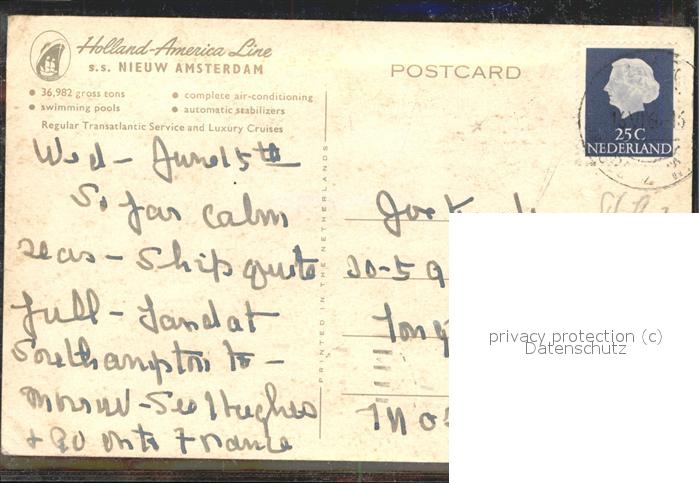 Holland-America Line
s.s. NIEUW AMSTERDAM
• 36,982 gross tons
• complete air-conditioning
• swimming pools
• automatic stabilizers
Regular Transatlantic Service and Luxury Cruises
POSTCARD
25C
NEDERLAND
PRINTED IN THE NETHERLANDS
Wed - June 15th
So far calm
seas - Ship quite
full - Land at
Southampton to-
morrow - See Hughes
+ go onto France
20-59
Long
privacy protection (c)
Datenschutz